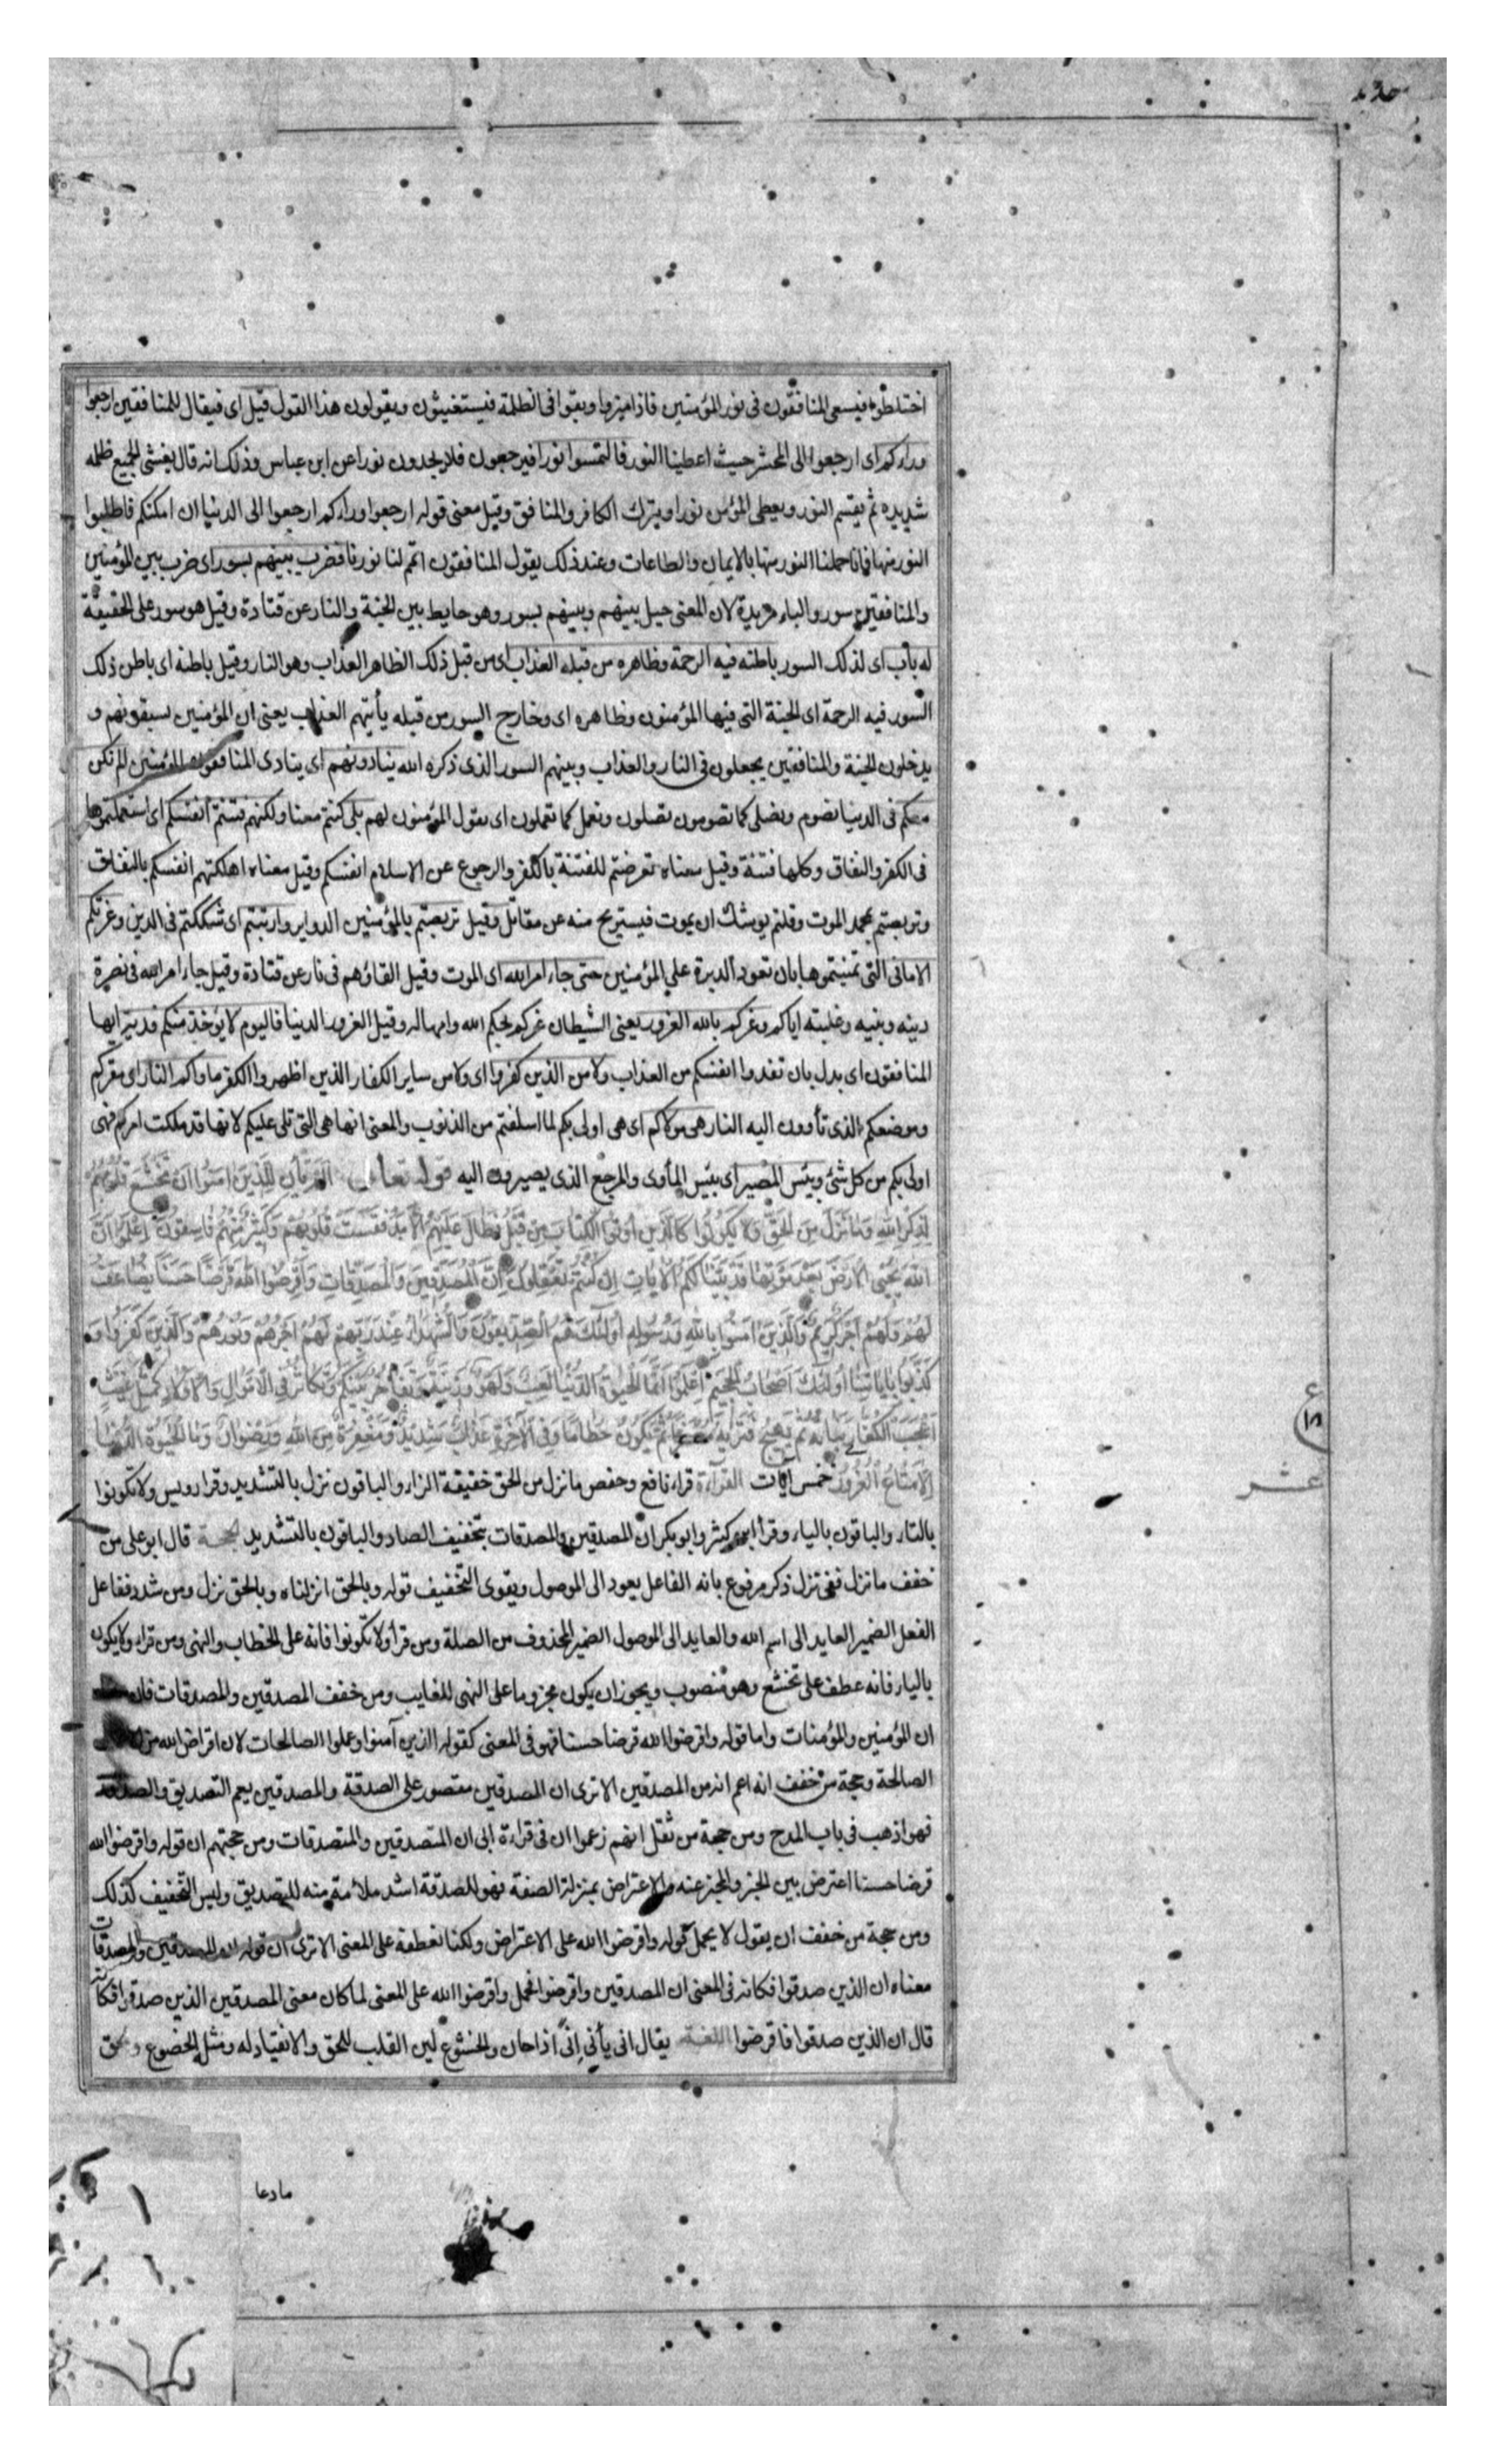 حديد
اختلطوا فيسعى المنافقون فى نور المؤمنين فاذا ميزوا وبقوا فى الظلمة فيستغيثون ويقولون هذا القول قيل اى فيقال للمنافقين ارجعوا
وراءكم اى ارجعوا الى المحشر حيث اعطينا النور فالتمسوا نورا فيرجعون فلا يجدون نورا عن ابن عباس وذلك انه قال يغشى الجميع ظلمه
شديده ثم يقسم النور ويعطى المؤمن نورا ويترك الكافر والمنافق وقيل معنى قوله ارجعوا وراءكم ارجعوا الى الدنيا ان امكنكم فاطلبوا
النور منها فانا حملنا النور منها بالايمان والطاعات وعند ذلك يقول المنافقون اتمم لنا نورنا فضرب بينهم بسور اى ضرب بين المؤمنين
والمنافقين سور والباء مزيدة لان المعنى حيل بينهم وبينهم بسور وهو حايط بين الجنة والنار عن قتادة وقيل هو سور على الحقيقة
له باب اى لذلك السور باطنه فيه الرحمة وظاهره من قبله العذاب اى من قبل ذلك الظاهر العذاب وهو النار وقيل باطنه اى باطن ذلك
السور فيه الرحمة اى الجنة التى فيها المؤمنون وظاهره اى وخارج السور من قبله يأتيهم العذاب يعنى ان المؤمنين يسبقونهم و
يدخلون الجنة والمنافقين يجعلون فى النار والعذاب وبينهم السور الذى ذكره الله ينادونهم اى ينادى المنافقون المؤمنين الم نكن
معكم فى الدنيا نصوم ونصلى كما تصومون تصلون ونعمل كما تعملون اى يقول المؤمنون لهم بلى كنتم معنا ولكنهم فتنتم انفسكم اى استعملتموها
فى الكفر والنفاق وكلها فتنة وقيل معناه تعرضتم للفتنة بالكفر والرجوع عن الاسلام انفسكم وقيل معناه اهلكتهم انفسكم بالنفاق
وتربصتم بمحمد الموت وقلتم يوشك ان يموت فيستريح منه عن مقاتل وقيل تربصتم بالمؤمنين الدواير وارتبتم اى شككتم فى الدين وغرتكم
الامانى التى تمنيتموها بان تعود الدبرة على المؤمنين حتى جاء امر الله اى الموت وقيل القاؤهم فى نار عن قتادة وقيل جاء امر الله فى نصرة
دينه ونبيه وغلبته اياكم وغركم بالله الغرور يعنى الشيطان غركم بحكم الله وامهاله وقيل الغرور الدنيا فاليوم لا يؤخذ منكم فدية ايها
المنافقون اى بدل بان تفدوا انفسكم من العذاب ولا من الذين كفروا اى ولا من ساير الكفار الذين اظهروا الكفر ماواكم النار اى مقركم
وموضعكم الذى تأوون اليه النار هى مولاكم اى هى اولى بكم لما اسلفتم من الذنوب والمعنى انها هى التى تلى عليكم لانها قد ملكت امركم فهى
اولى بكم من كل شئ وبئس المصير اى بئيس المأوى والمرجع الذى يصيرون اليه قوله تعالى الم يأن للذين امنوا ان تخشع قلوبهم
لذكر الله وما نزل من الحق ولا يكونوا كالذين اوتوا الكتاب من قبل فطال عليهم الامد فقست قلوبهم وكثير منهم فاسقون اعلموا ان
الله يحيى الارض بعد موتها قد بينا لكم الايات ان كنتم تعقلون ان المصدقين والمصدقات واقرضوا الله قرضا حسنا يضاعف
لهم ولهم اجر كريم والذين امنوا بالله ورسوله اولئك هم الصديقون والشهداء عند ربهم لهم اجرهم ونورهم والذين كفروا و
كذبوا باياتنا اولئك اصحاب الجحيم اعلموا انما الحيوة الدنيا لعب ولهو وزينة وتفاخر بينكم وتكاثر فى الاموال والاولاد كمثل غيث
اعجب الكفار نباته ثم يهيج فتريه مصفرا ثم يكون حطاما وفى الآخرة عذاب شديد ومغفرة من الله ورضوان وما الحيوة الدنيا
الا متاع الغرور خمس ايات القرآءة قراء نافع وحفص ما نزل من الحق خفيفة الزاء والباقون نزل بالتشديد وقرا رويس ولا تكونوا
بالتاء والباقون بالياء وقرأ ابن كثير وابو بكر ان المصدقين والمصدقات بتخفيف الصاد والباقون بالتشديد الحجة قال ابو على من
خفف ما نزل ففى نزل ذكر مرفوع بانه الفاعل يعود الى الموصول ويقوى التخفيف قوله وبالحق انزلناه وبالحق نزل ومن شدد ففاعل
الفعل الضمير العايد الى اسم الله والعايد الى الموصول الضمير المحذوف من الصلة ومن قرأ ولا تكونوا فانه على الخطاب والنهى ومن قراء ولا يكون
بالياء فانه عطف على تخشع وهو منصوب ويجوز ان يكون مجزوما على النهى للغايب ومن خفف المصدقين والمصدقات فان
ان المؤمنين والمؤمنات واما قوله واقرضوا الله قرضا حسنا فهو فى المعنى كقوله الذين آمنوا وعملوا الصالحات لان اقراض الله من
الصالحة وحجة من خفف انه اعم انه من المصدقين الا ترى ان المصدقين مقصور على الصدقة والمصدقين يعم التصديق والصدقة
فهو اذهب فى باب المدح ومن حجة من ثقل انهم زعموا ان فى قراءة ابى ان المتصدقين والمتصدقات ومن حجتهم ان قوله واقرضوا الله
قرضا حسنا اعترض بين الخبر والمخبر عنه والاعتراض بمنزلة الصفة فهو للصدقة اشد ملائمة منه للتصديق وليس التخفيف كذلك
ومن حجة من خفف ان يقول لا يحمل قوله واقرضوا الله على الاعتراض ولكنا نعطفه على المعنى الا ترى ان قوله ان المصدقين والمصدقات
معناه ان الذين صدقوا فكانه فى المعنى ان المصدقين واقرضوا فحمل واقرضوا الله على المعنى لما كان معنى المصدقين الذين صدقوا فكانه
قال ان الذين صدقوا فاقرضوا اللغة يقال انى يأنى انى اذا حان والخشوع لين القلب للحق والانقياد له ومثل الخضوع و
ع
عشر
مادعا